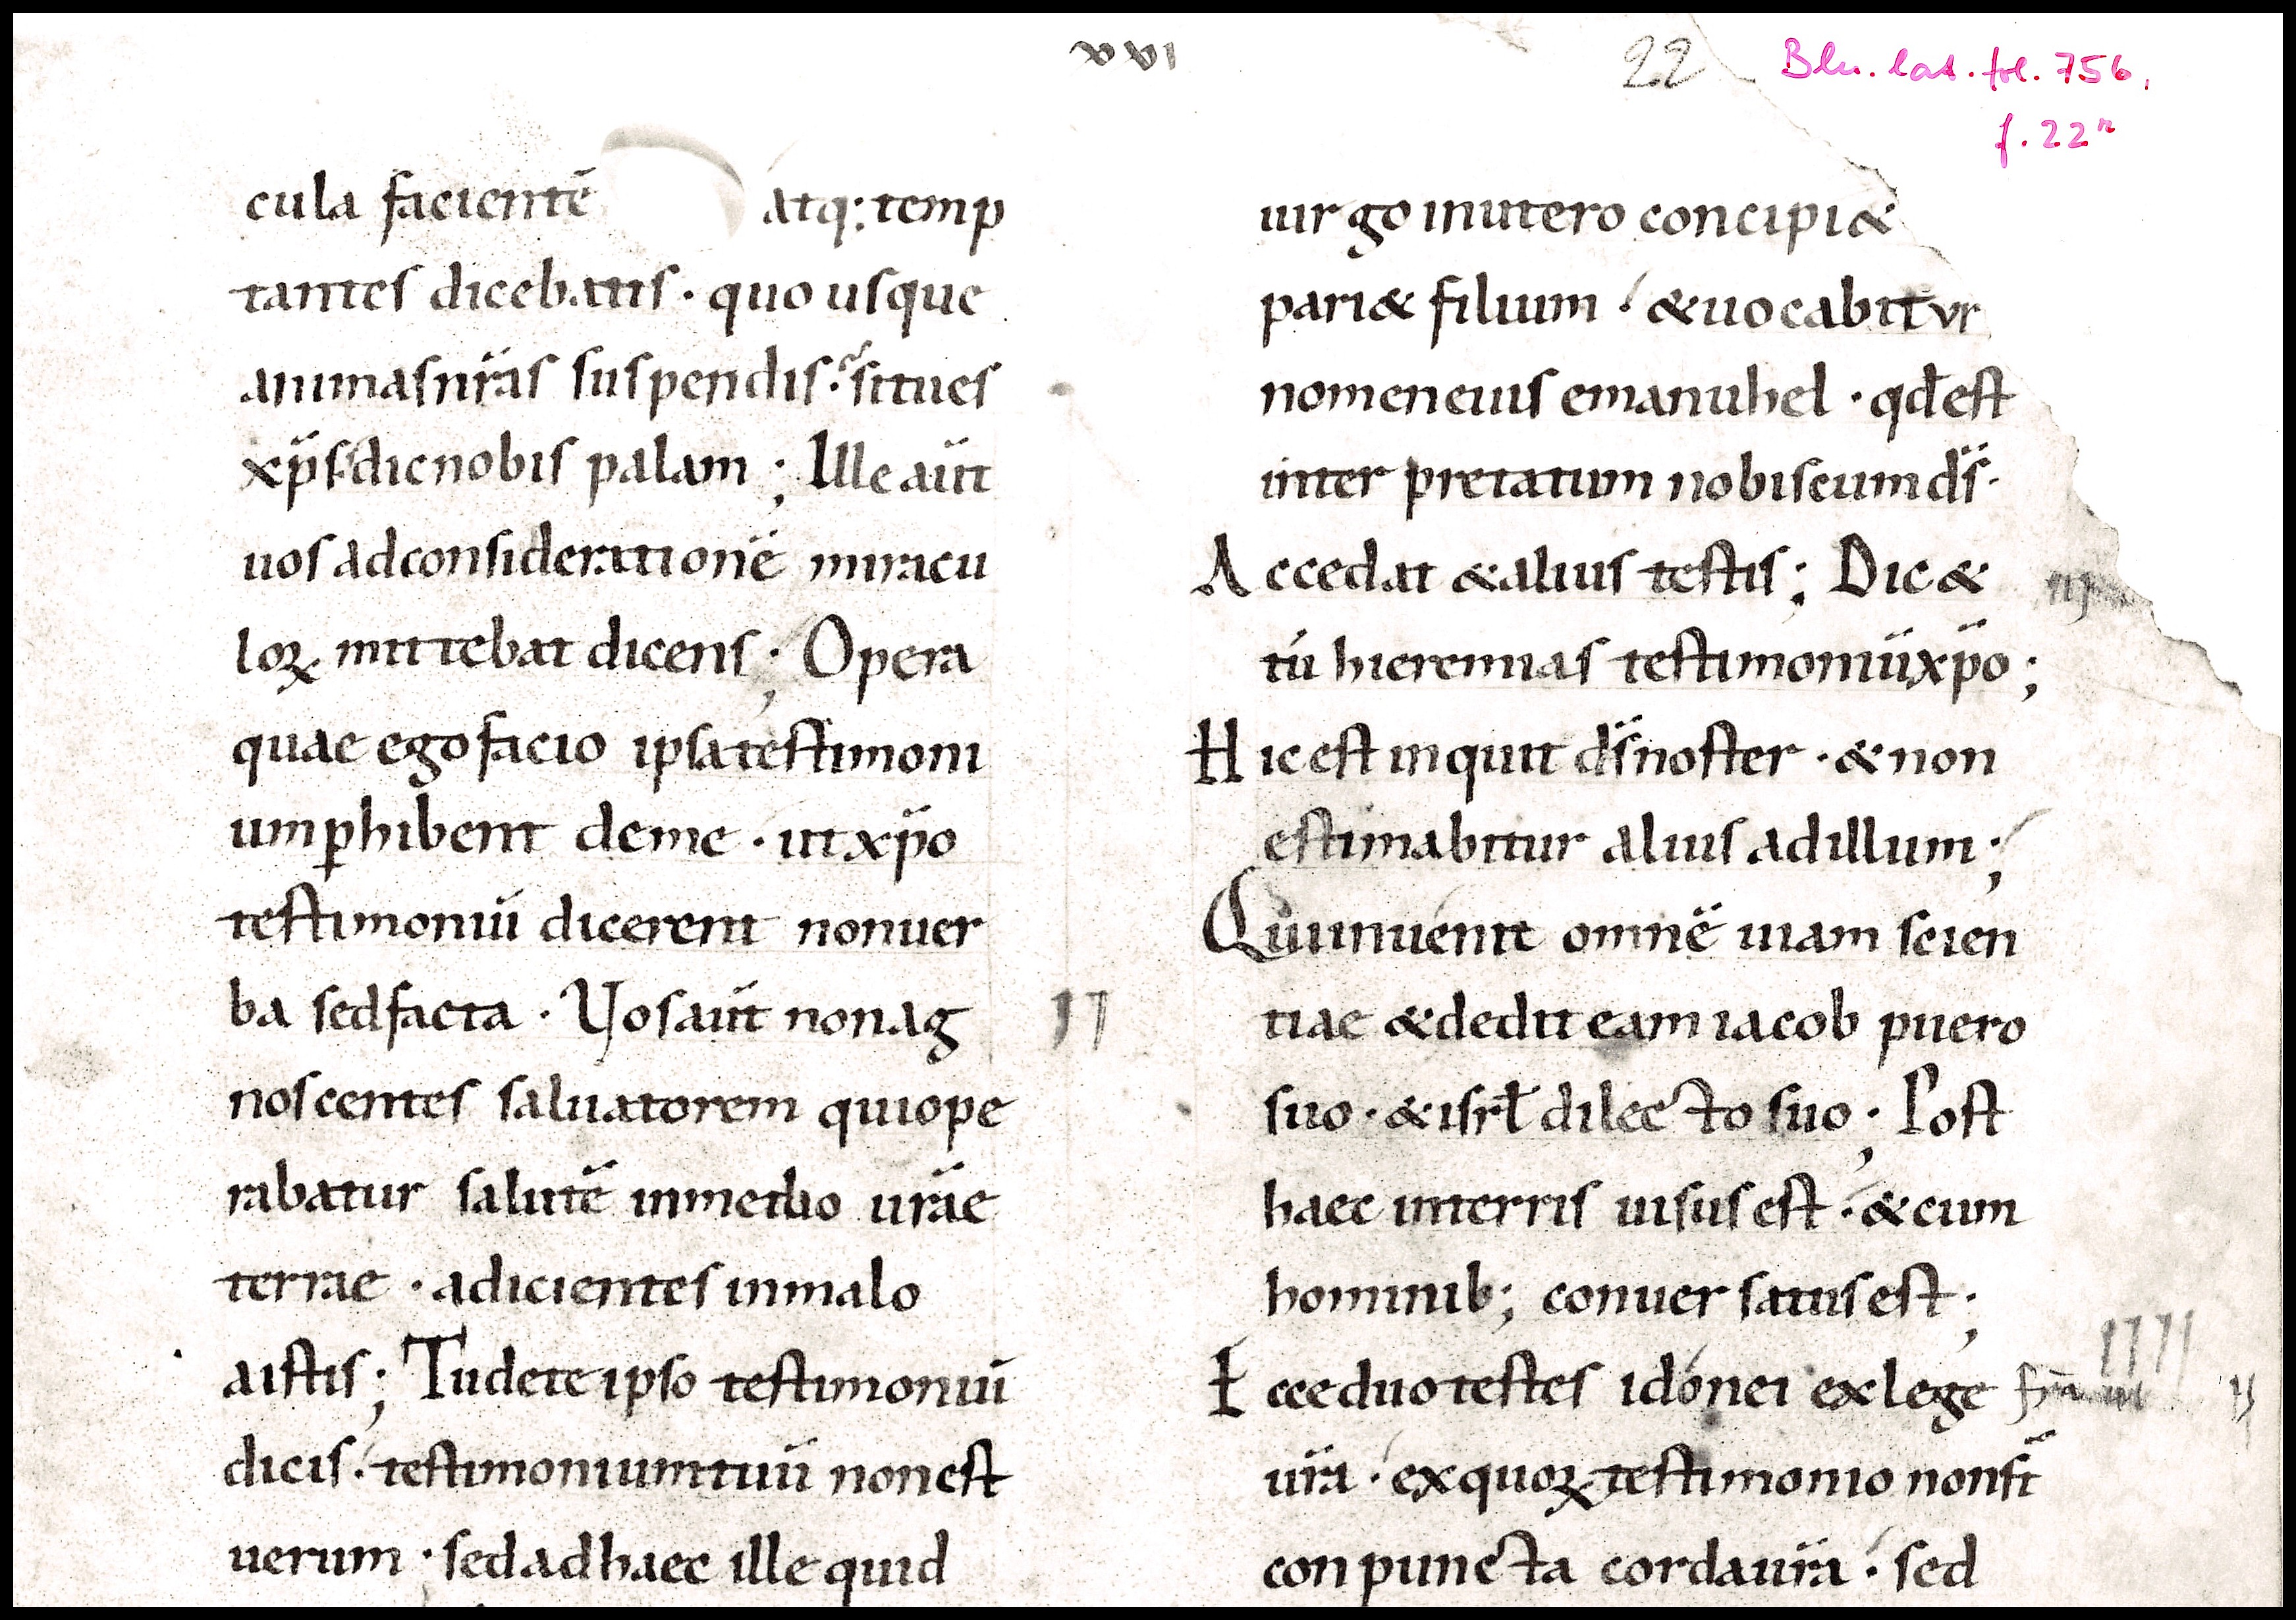 xxvi
22
Bln. lat. fol. 756,
f. 22r
cula facientē atq; temp
tantes dicebatis · quo usque
animas nr̄as suspendis · si tu es
xp̄s dic nobis palam ; Ille aūt
uos ad considerationē miracu
loꝝ mittebat dicens ; Opera
quae ego facio ipsa testimoni
um ꝑhibent de me · ut xp̄o
testimoniū dicerent non uer
ba sed facta · Vos aūt non ag
noscentes saluatorem qui ope
rabatur salutē in medio ur̄ae
terrae · adicientes in malo
aistis ; Tu de te ipso testimoniū
dicis · testimonium tuū non est
uerum · sed ad haec ille quid
uirgo in utero concipi&
pari& filium · & uocabitur
nomen eius emanuhel · qd̄ est
interpretatum nobiscum d̄s ·
Accedat & alius testis ; Dic &
tú hieremias testimoniū xp̄o ;
Hic est inquit d̄s noster · & non
estimabitur alius ad illum ;
Qui inuenit omnē uiam scien
tiae & dedit eam iacob puero
suo · & isrl̄ dilecto suo ; Post
haec in terris uisus est · & cum
hominib; conuersatus est ;
Ecce duo testes idónei ex lege
ur̄a · ex quoꝝ testimonio non sī
conpuncta corda ur̄a · sed